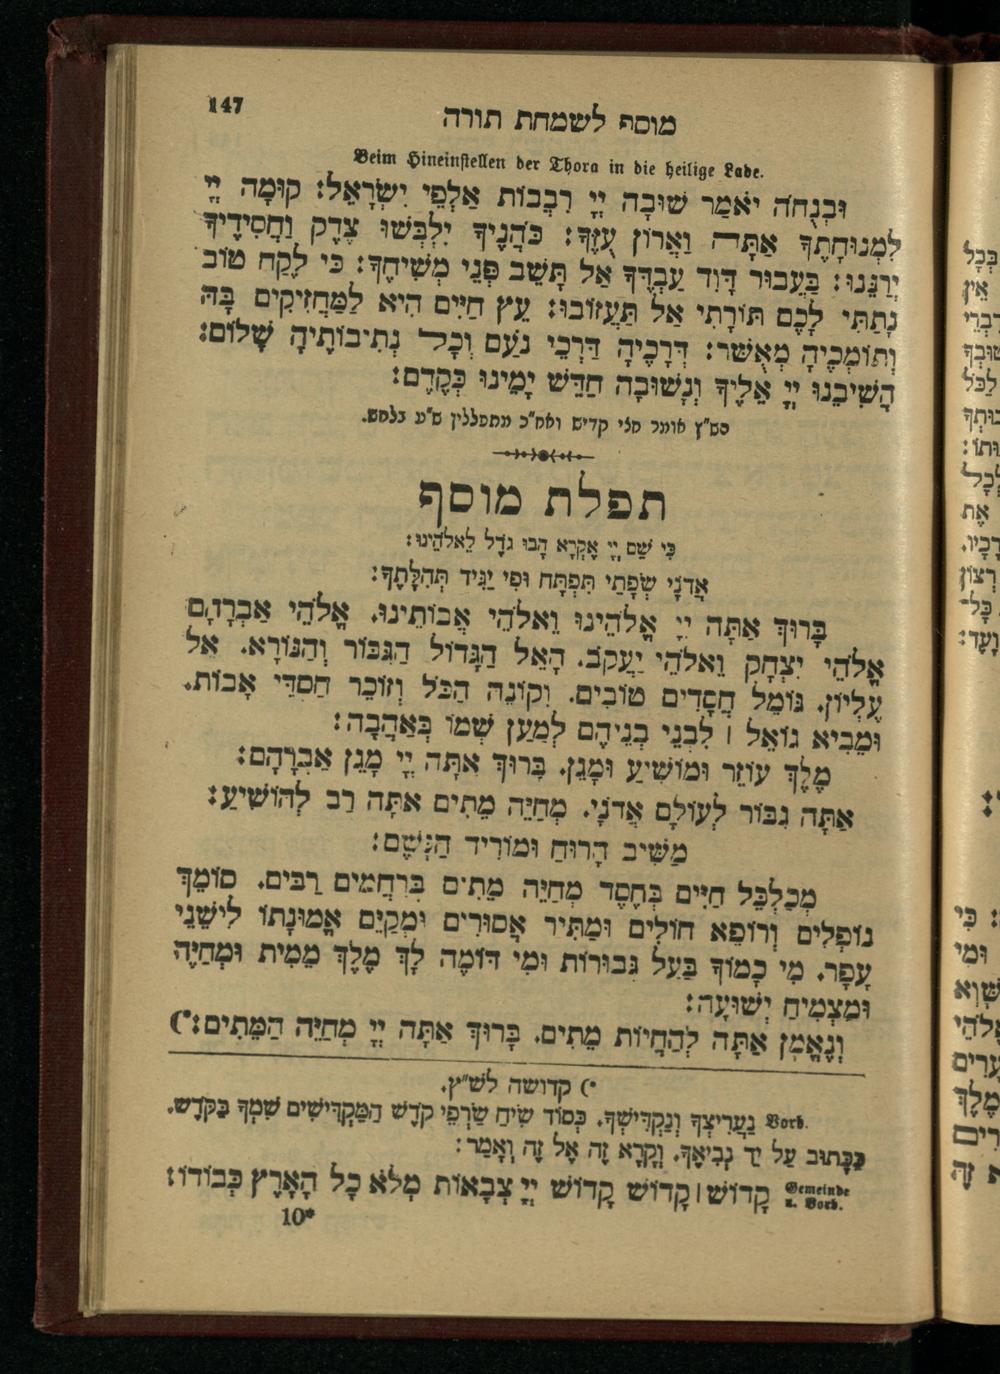 147
מוסף לשמחת תורה
Beim Hineinstellen der Thora in die heilige Lade.
וּבְנֻחֹה יֹאמַר שׁוּבָה יְיָ רִבֲבוֹת אַלְפֵי יִשְׂרָאֵל: קוּמָה יְיָ
לִמְנוּחָתֶךָ אַתָּה וַאֲרוֹן עֻזֶּךָ: כֹּהֲנֶיךָ יִלְבְּשׁוּ צֶדֶק וַחֲסִידֶיךָ
יְרַנֵּנוּ: בַּעֲבוּר דָּוִד עַבְדֶּךָ אַל תָּשֵׁב פְּנֵי מְשִׁיחֶךָ: כִּי לֶקַח טוֹב
נָתַתִּי לָכֶם תּוֹרָתִי אַל תַּעֲזוֹבוּ: עֵץ חַיִּים הִיא לַמַּחֲזִיקִים בָּהּ
וְתוֹמְכֶיהָ מְאֻשָּׁר: דְּרָכֶיהָ דַּרְכֵי נֹעַם וְכָל נְתִיבוֹתֶיהָ שָׁלוֹם:
הֲשִׁיבֵנוּ יְיָ אֵלֶיךָ וְנָשׁוּבָה חַדֵּשׁ יָמֵינוּ כְּקֶדֶם:
הש"ץ אומר חצי קדיש ואח"כ מתפללין ש"ע בלחש.
תפלת מוסף
כִּי שֵׁם יְיָ אֶקְרָא הָבוּ גֹדֶל לֵאלֹהֵינוּ:
אֲדֹנָי שְׂפָתַי תִּפְתָּח וּפִי יַגִּיד תְּהִלָּתֶךָ:
בָּרוּךְ אַתָּה יְיָ אֱלֹהֵינוּ וֵאלֹהֵי אֲבוֹתֵינוּ. אֱלֹהֵי אַבְרָהָם
אֱלֹהֵי יִצְחָק וֵאלֹהֵי יַעֲקֹב. הָאֵל הַגָּדוֹל הַגִּבּוֹר וְהַנּוֹרָא. אֵל
עֶלְיוֹן. גּוֹמֵל חֲסָדִים טוֹבִים. וְקוֹנֵה הַכֹּל וְזוֹכֵר חַסְדֵי אָבוֹת.
וּמֵבִיא גוֹאֵל ׀ לִבְנֵי בְנֵיהֶם לְמַעַן שְׁמוֹ בְּאַהֲבָה:
מֶלֶךְ עוֹזֵר וּמוֹשִׁיעַ וּמָגֵן. בָּרוּךְ אַתָּה יְיָ מָגֵן אַבְרָהָם:
אַתָּה גִבּוֹר לְעוֹלָם אֲדֹנָי. מְחַיֵּה מֵתִים אַתָּה רַב לְהוֹשִׁיעַ:
מַשִּׁיב הָרוּחַ וּמוֹרִיד הַגֶּשֶׁם:
מְכַלְכֵּל חַיִּים בְּחֶסֶד מְחַיֵּה מֵתִים בְּרַחֲמִים רַבִּים. סוֹמֵךְ
נוֹפְלִים וְרוֹפֵא חוֹלִים וּמַתִּיר אֲסוּרִים וּמְקַיֵּם אֱמוּנָתוֹ לִישֵׁנֵי
עָפָר. מִי כָמוֹךָ בַּעַל גְּבוּרוֹת וּמִי דּוֹמֶה לָּךְ מֶלֶךְ מֵמִית וּמְחַיֶּה
וּמַצְמִיחַ יְשׁוּעָה:
וְנֶאֱמָן אַתָּה לְהַחֲיוֹת מֵתִים. בָּרוּךְ אַתָּה יְיָ מְחַיֵּה הַמֵּתִים:*)
*) קדושה לש"ץ.
Vorb. נַעֲרִיצְךָ וְנַקְדִּישְׁךָ. כְּסוֹד שִׂיחַ שַׂרְפֵי קֹדֶשׁ הַמַּקְדִּישִׁים שִׁמְךָ בַּקֹּדֶשׁ.
כַּכָּתוּב עַל יַד נְבִיאֶךָ. וְקָרָא זֶה אֶל זֶה וְאָמַר:
Gemeinde u. Vorb. קָדוֹשׁ ׀ קָדוֹשׁ קָדוֹשׁ יְיָ צְבָאוֹת מְלֹא כָל הָאָרֶץ כְּבוֹדוֹ:
10*